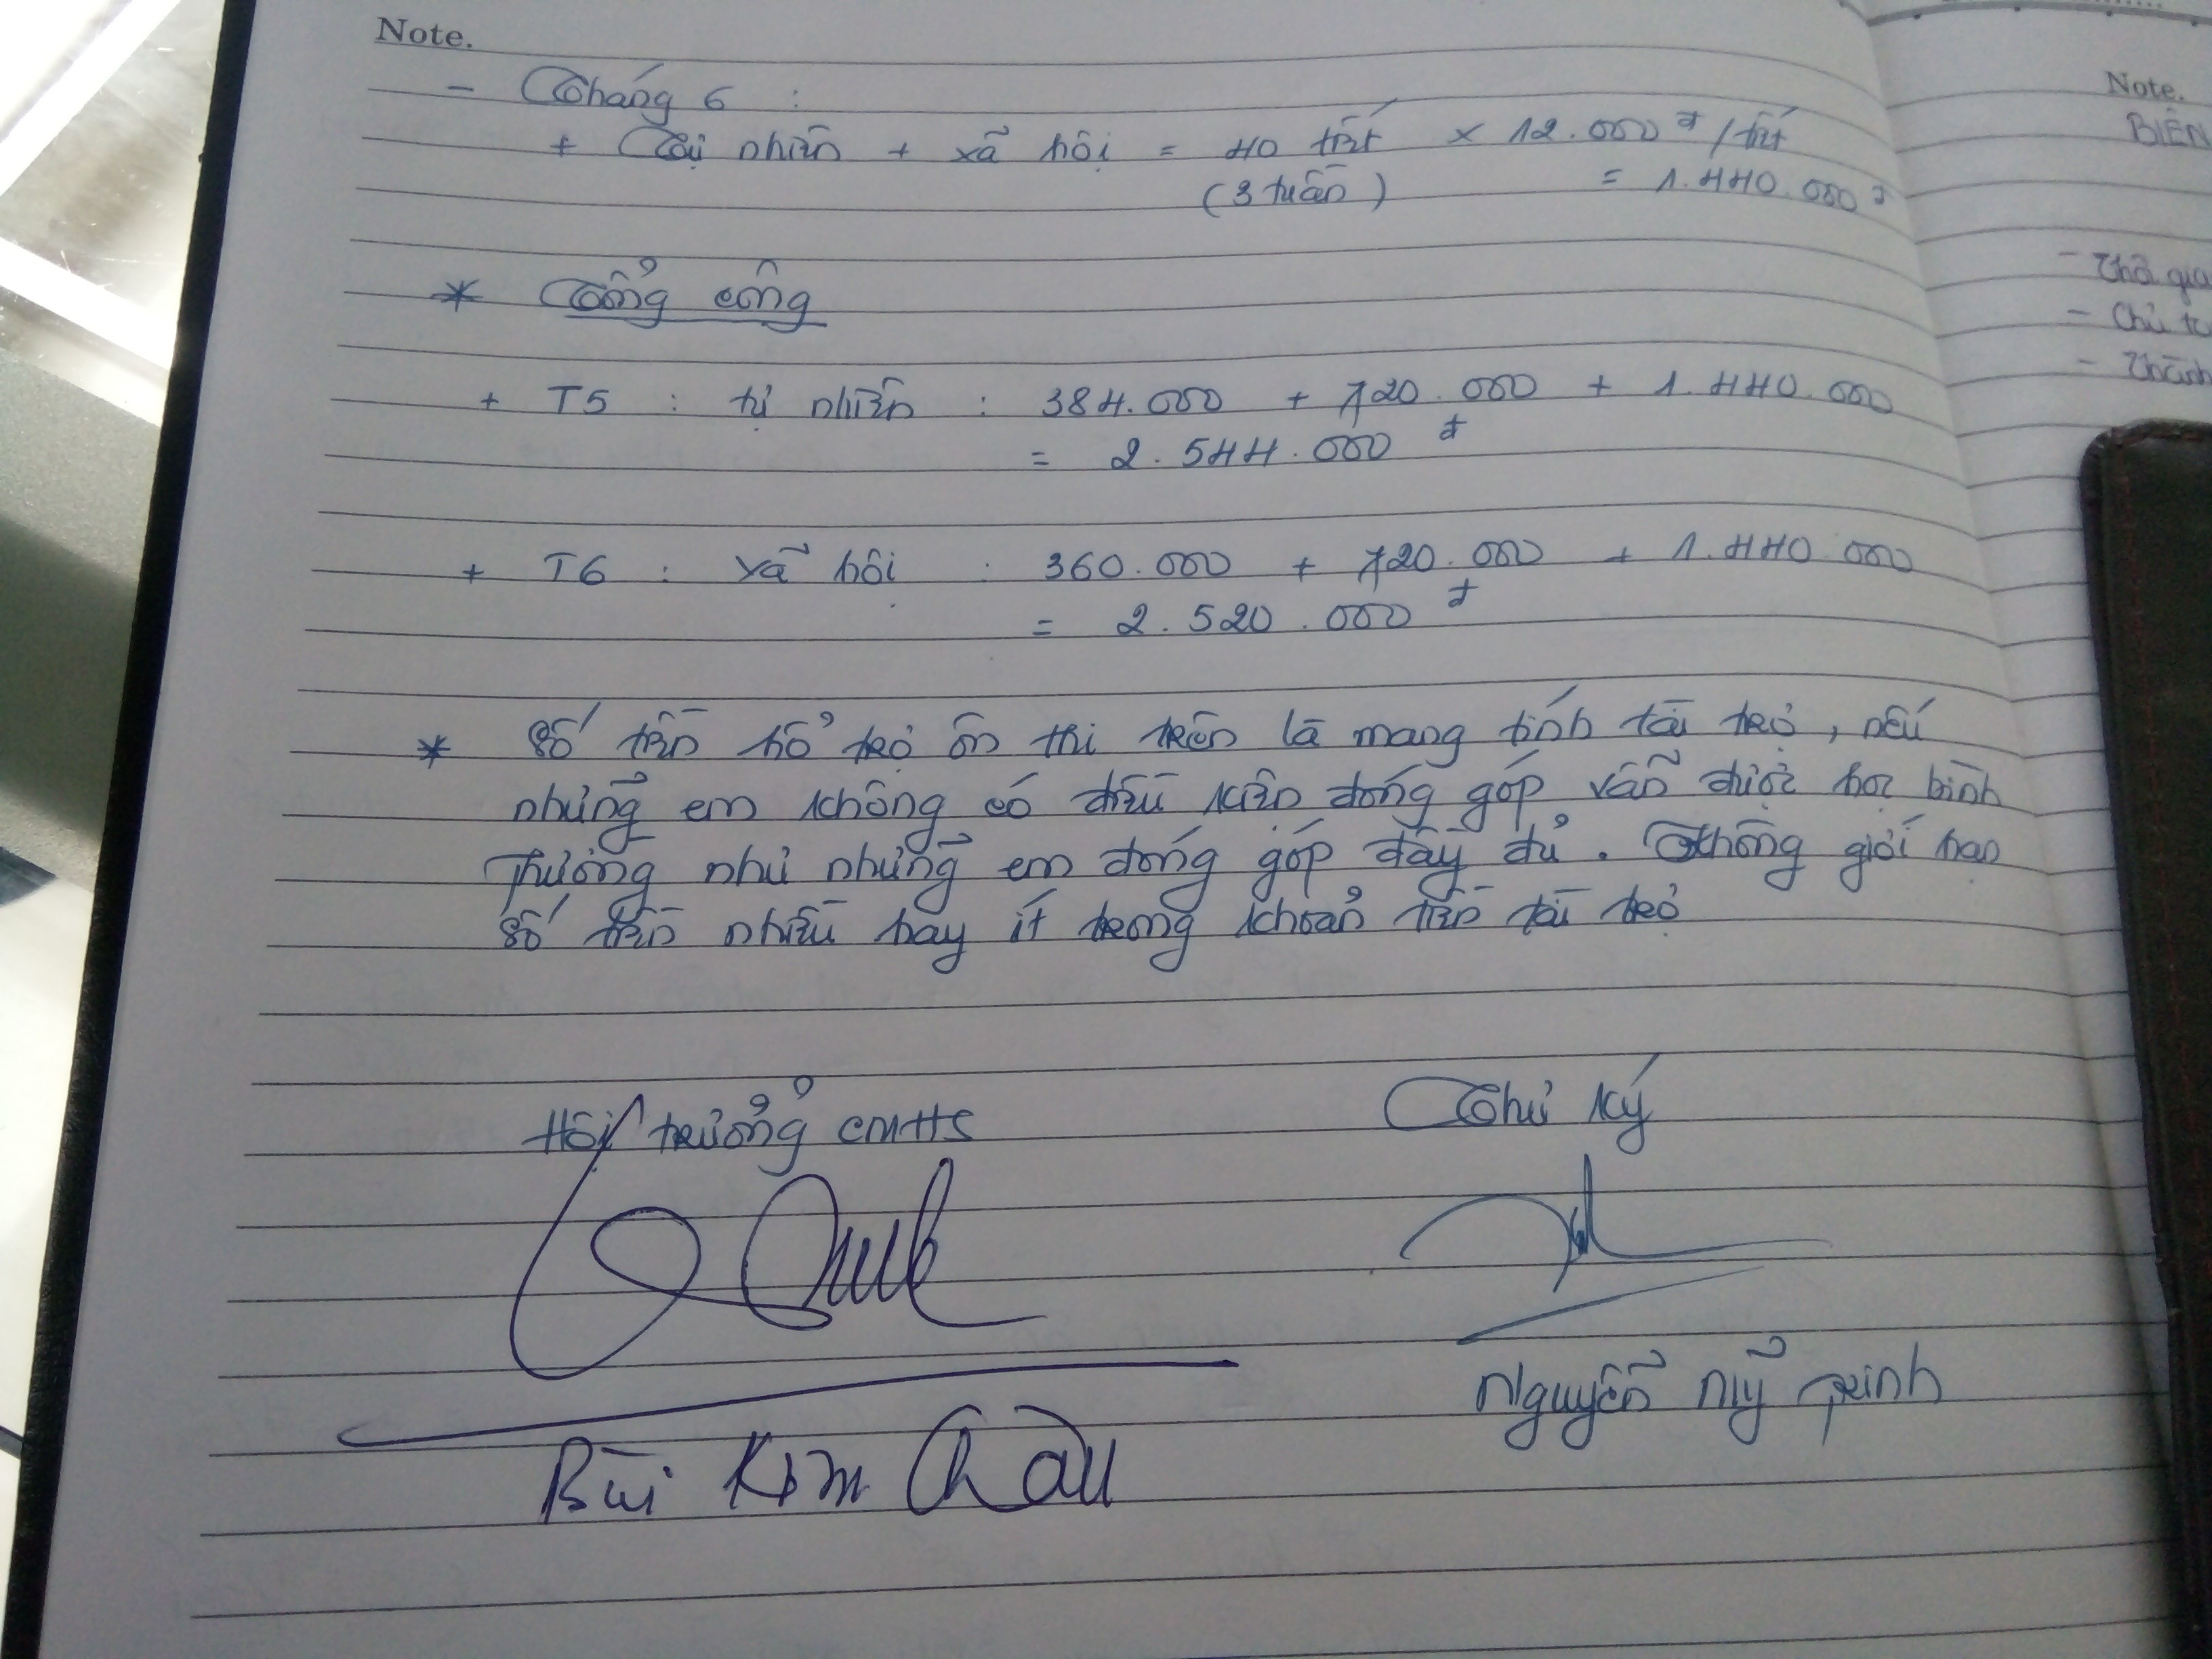 Note.
- Tháng 6 :
+ Tự nhiên + xã hội = 40 tiết × 12.000đ/tiết
(3 tuần) = 1.440.000đ
* Tổng cộng
+ T5 : tự nhiên : 384.000 + 720.000 + 1.440.000
= 2.544.000đ
+ T6 : xã hội : 360.000 + 720.000 + 1.440.000
= 2.520.000đ
* Số tiền hổ trợ ôn thi trên là mang tính tài trợ, nếu
những em không có điều kiện đóng góp vẫn được học bình
thường như những em đóng góp đầy đủ. Không giới hạn
số tiền nhiều hay ít trong khoản tiền tài trợ
Hội trưởng CMHS
Thư ký
Nguyễn Mỹ Trinh
Bùi Kim Châu
Note.
BIÊN
- Thời gia
- Chủ tọ
- Thành